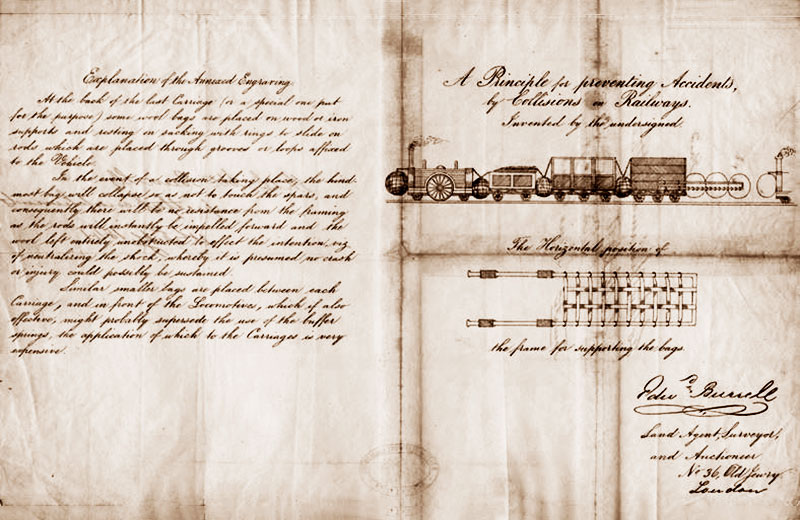 Explanation of the Annexed Engraving.
At the back of the last Carriage (or a special one put
for the purpose) some wool bags are placed on wood or iron
supports and resting in sacking with rings to slide on
rods which are placed through grooves or loops affixed
to the Vehicle.
In the event of a collision taking place, the hind-
most bag will collapse so as not to touch the spars, and
consequently there will be no resistance from the framing
as the rods will instantly be impelled forward and the
wool left entirely unobstructed to effect the intention, viz
of neutralizing the shock, whereby it is presumed no crash
or injury could possibly be sustained.
Similar smaller bags are placed between each
Carriage, and in front of the Locomotives, which if also
effective, might probably supersede the use of the buffer
springs, the application of which to the Carriages is very
expensive.
A Principle for preventing Accidents,
by Collisions on Railways.
Invented by the undersigned.
The Horizontal position of
the frame for supporting the bags.
Edwd Burrell
Land Agent, Surveyor,
and Auctioneer
No 36, Old Jewry
London